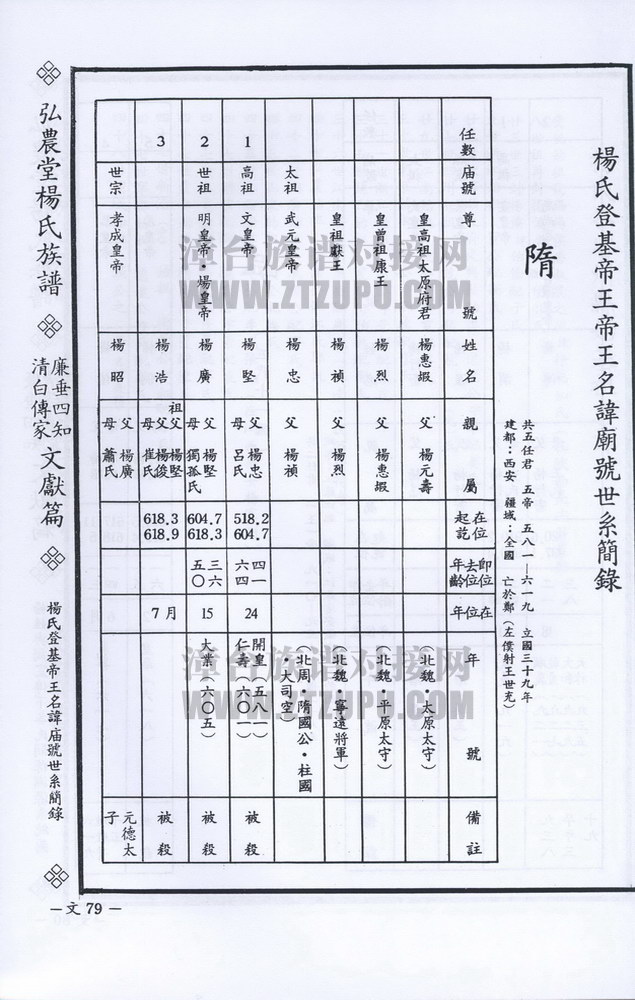 楊氏登基帝王帝王名諱廟號世系簡錄
隋
共五任君 五帝 五八一—六一九 立國三十九年
建都：西安 疆域：全國 亡於鄭（左僕射王世充）
任數 庙號 尊號 姓名 親屬 在位起訖 即位去位年齡 在位年 年號 備註
皇高祖太原府君 楊惠嘏 父 楊元壽 （北魏・太原太守）
皇曾祖康王 楊烈 父 楊惠嘏 （北魏・平原太守）
皇祖獻王 楊禎 父 楊烈 （北魏・寧遠將軍）
太祖 武元皇帝 楊忠 父 楊禎 （北周・隋國公・柱國・大司空）
1 高祖 文皇帝 楊堅 父 楊忠 母 呂氏 518.2 604.7 四一 六四 24 開皇（五八一） 仁壽（六〇一） 被殺
2 世祖 明皇帝・煬皇帝 楊廣 父 楊堅 母 獨孤氏 604.7 618.3 三六 五〇 15 大業（六〇五） 被殺
3 楊浩 祖父 楊堅 父 楊俊 母 崔氏 618.3 618.9 7月 被殺
世宗 孝成皇帝 楊昭 父 楊廣 母 蕭氏 元德太子
弘農堂楊氏族譜
廉垂四知
清白傳家
文獻篇
楊氏登基帝王名諱庙號世系簡錄
—文 79 —
漳台族谱对接网
WWW.ZTZUPU.COM
漳台族谱对接网
WWW.ZTZUPU.COM